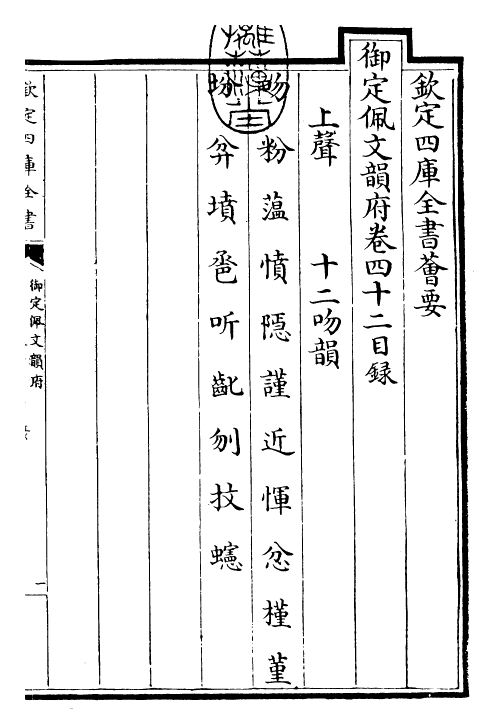 欽定四庫全書薈要
御定佩文韻府卷四十二目録
上聲　十二吻韻
吻粉蕰憤隱謹近惲忿槿堇
坋弅墳巹听齔刎抆螼
欽定四庫全書
御定佩文韻府
一